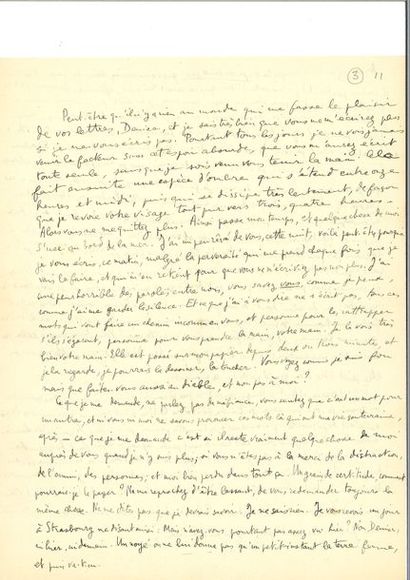 (3) 11
Peut-être qu'il n'y a rien au monde qui me fasse le plaisir
de vos lettres, Denise, et je sais très bien que vous ne m'écrirez plus
si je ne vous écris pas. Pourtant tous les jours je ne vois jamais
venir le facteur sans cet espoir absurde, que vous m'aurez écrit
toute seule, sans que je sois venu vous tenir la main. Cela
fait ensuite une espèce d'ombre qui s'étend entre onze
heures et midi, puis qui se dissipe très lentement, de façon
que je revoie votre visage tout pur vers trois, quatre heures.
Alors vous ne me quittez plus. Ainsi passe mon temps, et quelque chose de moi
s'use au bord de la mer. J'ai rêvé de vous, cette nuit, voilà peut-être pourquoi
je vous écris, ce matin, malgré la perversité qui me prend chaque fois que je
vais le faire, et qui m'en retient pour que vous ne m'écriviez pas non plus. J'ai
une peur horrible des paroles entre nous, vous savez, vous, comme je peux,
comme j'aime garder le silence. Et ce que j'ai à vous dire ne s'écrit pas, tous ces
mots qui vont faire un chemin incommensurable, et personne pour les rattraper
s'ils s'égarent, personne pour vous prendre la main, votre main. Je la vois très
bien votre main. Elle est posée sur mon papier depuis deux ou trois minutes, et
je la regarde, je pourrais la dessiner, la toucher. Vous voyez comme je suis fou
mais que faites-vous aussi en diable, et non pas à moi?
Ce que je me demande, ne parlez pas de méfiance, vous sentez que c'est un mot pour
un autre, et ni vous ni moi ne savons prononcer ces mots là qui ont ma vie souterraine,
après — ce que je me demande c'est s'il reste vraiment quelque chose de moi
auprès de vous quand je n'y suis plus, si vous n'êtes pas à la merci de la distraction,
de l'ennui, des personnes, et moi bien perdu dans tout ça. Un grain de certitude, comment
pourrais-je le payer? Ne me reprochez d'être lassant, de vous redemander toujours la
même chose. Ne me dites pas que je devrais savoir. Je ne sais rien. Je vous revois un jour
à Strasbourg me disant ainsi: Mais n'avez-vous pourtant pas assez vu hier? Non Denise,
ni hier, ni demain. Un noyé on ne lui donne pas qu'un petit instant la terre ferme,
et puis va-t'en.